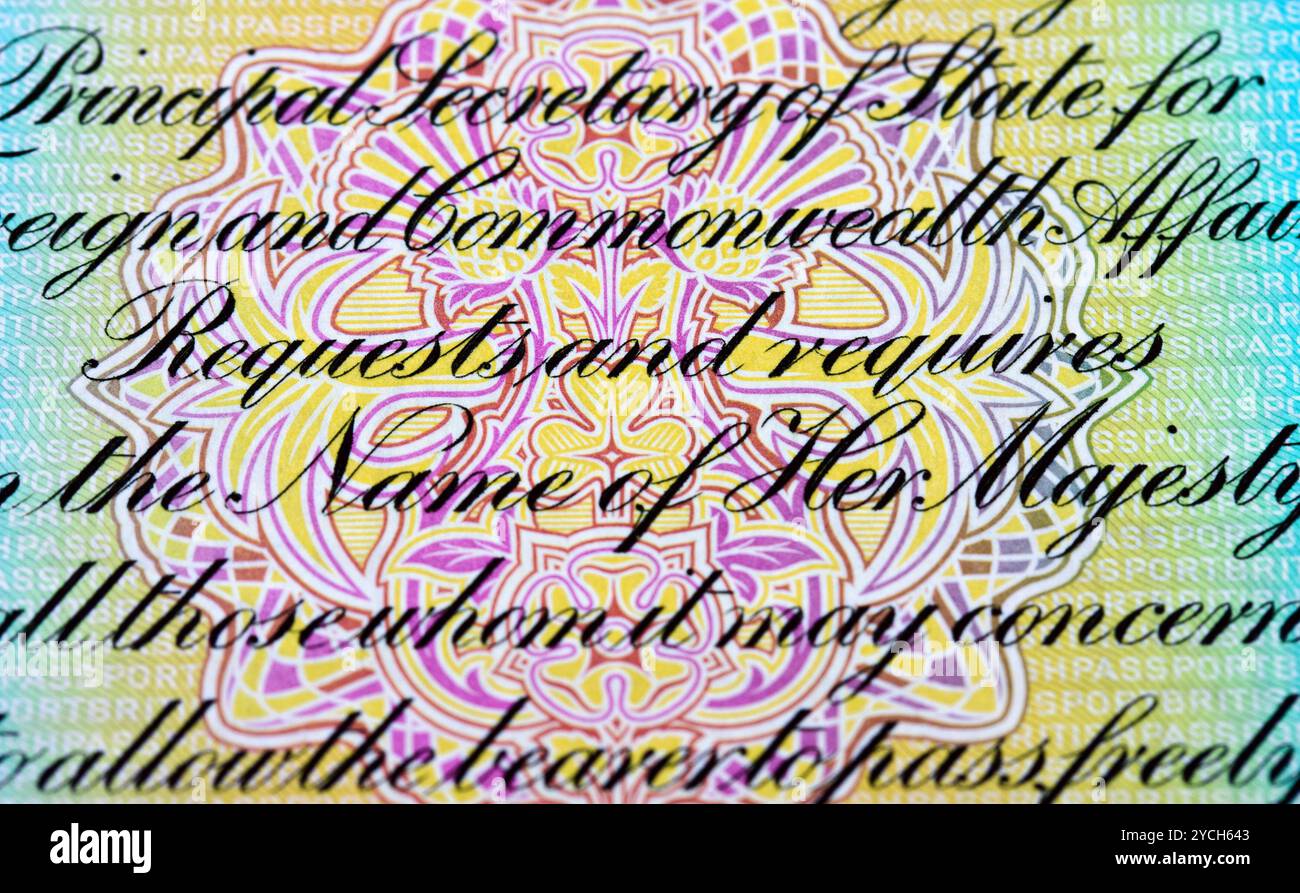 Principal Secretary of State for
reign and Commonwealth Affai
Requests and requires
the Name of Her Majesty
all those whom it may concern
to allow the bearer to pass freely
BRITISHPASSPORTBRITISHPASSPORT
a
alamy
Image ID: YCH643
www.alamy.com